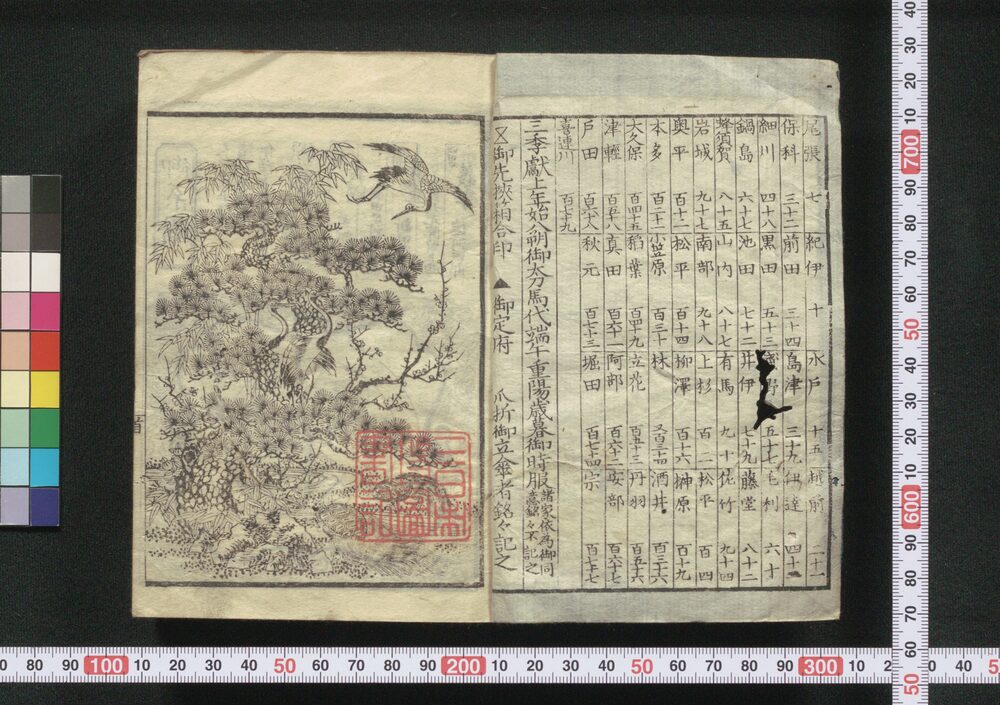 尾張 七 紀伊 十 水戸 十五 越前 二十一
保科 三十二 前田 三十四 島津 三十九 伊達 四十
細川 四十八 黒田 五十三 野 五十七 毛利 六十
鍋島 六十七 池田 七十二 井伊 七十九 藤堂 八十二
蜂須賀 八十五 山内 八十七 有馬 九十 佐竹 九十四
岩城 九十七 南部 九十八 上杉 百二 松平 百四
奥平 百十二 松平 百十四 柳澤 百十六 榊原 百十九
本多 百二十二 小笠原 百三十 林 又百三十四 酒井 百三十六
大久保 百四十五 稲葉 百四十九 立花 百五十三 丹羽 百五十六
津軽 百五十八 真田 百六十二 阿部 百六十三 安部 百六十七
戸田 百六十八 秋元 百七十三 堀田 百七十四 宗 百七十七
喜連川 百七十九
三季献上年始八朔御太刀馬代端午重陽歳暮御時服 諸家依為御同意銘々不記之
又御先挟箱合印 ▲御定府 爪折御立傘者銘々記之